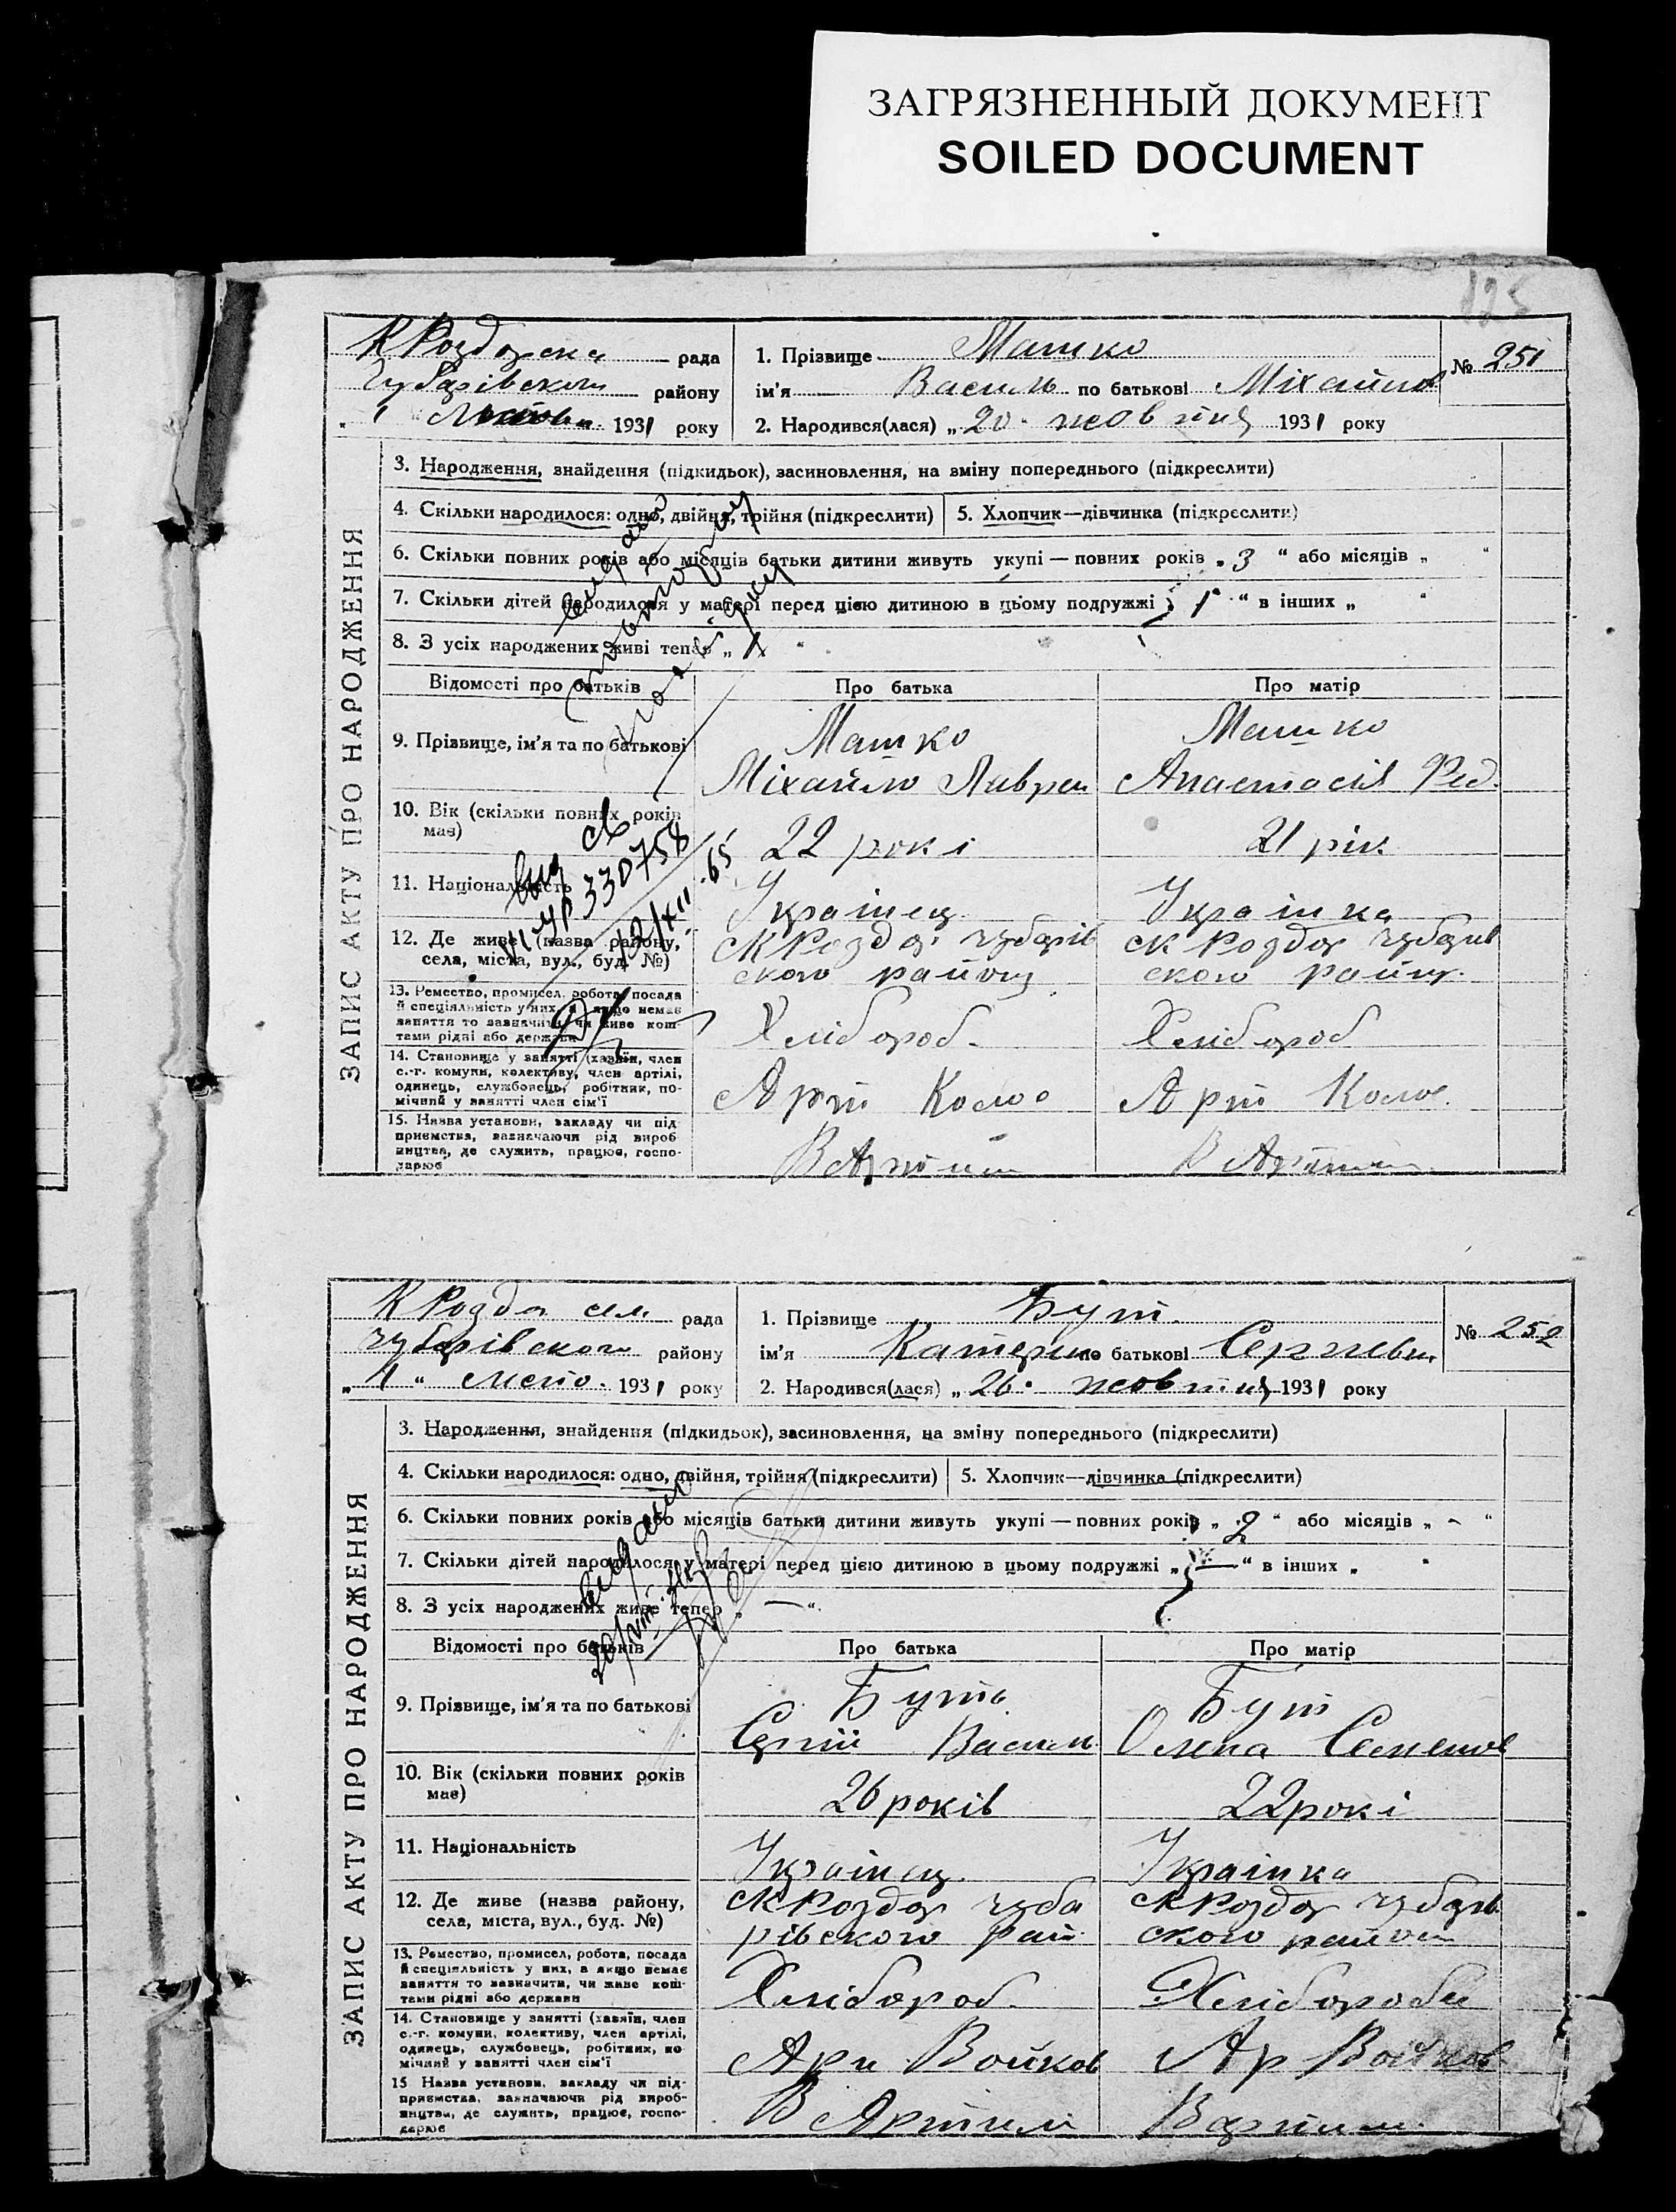 ЗАГРЯЗНЕННЫЙ ДОКУМЕНТ
SOILED DOCUMENT
125
К Роздорска рада
Чубарівського району
" 1 " 1931 року
1. Прізвище Машко
ім'я Василь по батькові Міхайлов
№ 251
2. Народився(лася) „ 20 жовтня 1931 року
ЗАПИС АКТУ ПРО НАРОДЖЕННЯ
3. Народження, знайдення (підкидьок), засиновлення, на зміну попереднього (підкреслити)
4. Скільки народилося: одно, двійня, трійня (підкреслити) 5. Хлопчик—дівчинка (підкреслити)
6. Скільки повних років або місяців батьки дитини живуть укупі — повних років „ 3 “ або місяців „ “
7. Скільки дітей народилося у матері перед цією дитиною в цьому подружжі „ 1 “ в інших „ “
8. З усіх народжених живі тепер „ 1 “
Відомості про батьків Про батька Про матір
9. Прізвище, ім'я та по батькові
Машко Машко
Міхайло Лаврен Анастасія Фед.
10. Вік (скільки повних років має)
22 рокі 21 рік
вид св
УР 330758
12/XII.65
11. Національність
Українец Українка
12. Де живе (назва району, села, міста, вул., буд. №)
с К Роздор чубарів с К Роздор чубарив
ского району ского району
13. Ремество, промисел, робота, посада й спеціяльність у них, а якщо немає заняття то зазначити, чи живе коштами рідні або держави
Хлібороб. Хлібороб
14. Становище у занятті (хазяїн, член с.-г. комуни, колективу, член артілі, одинець, службовець, робітник, помічний у занятті член сім'ї
Арт Колос Арт Колос
15. Назва установи, закладу чи підприємства, зазначаючи рід виробництва, де служить, працює, господарює
В Артили В Артили
К Розд сел рада
Чубарівского району
„ 1 “ листо. 1931 року
1. Прізвище Бут.
ім'я Катерина по батькові Сергиевн.
№ 252
2. Народився(лася) „ 26 жовтня 1931 року
ЗАПИС АКТУ ПРО НАРОДЖЕННЯ
3. Народження, знайдення (підкидьок), засиновлення, на зміну попереднього (підкреслити)
4. Скільки народилося: одно, двійня, трійня (підкреслити) 5. Хлопчик—дівчинка (підкреслити)
6. Скільки повних років або місяців батьки дитини живуть укупі — повних років „ 2 “ або місяців „ - “
7. Скільки дітей народилося у матері перед цією дитиною в цьому подружжі „ — “ в інших „ “
8. З усіх народжених живе тепер „ — “
Відомості про батьків Про батька Про матір
9. Прізвище, ім'я та по батькові
Бут Бут
Сергій Васил Олена Семенов
10. Вік (скільки повних років має)
26 років 22 рокі
11. Національність
Українец. Українка
12. Де живе (назва району, села, міста, вул., буд. №)
с К Роздор чуба с К Роздор чубарів
рівского рай. ского району
13. Ремество, промисел, робота, посада й спеціяльність у них, а якщо немає заняття то зазначити, чи живе коштами рідні або держави
Хлібороб. Хлібороб
14. Становище у занятті (хазяїн, член с.-г. комуни, колективу, член артілі, одинець, службовець, робітник, помічний у занятті член сім'ї
Арт Войков Ар Войков
15 Назва установи, закладу чи підприємства, зазначаючи рід виробництва, де служить, працює, господарює
В Артилі В артили